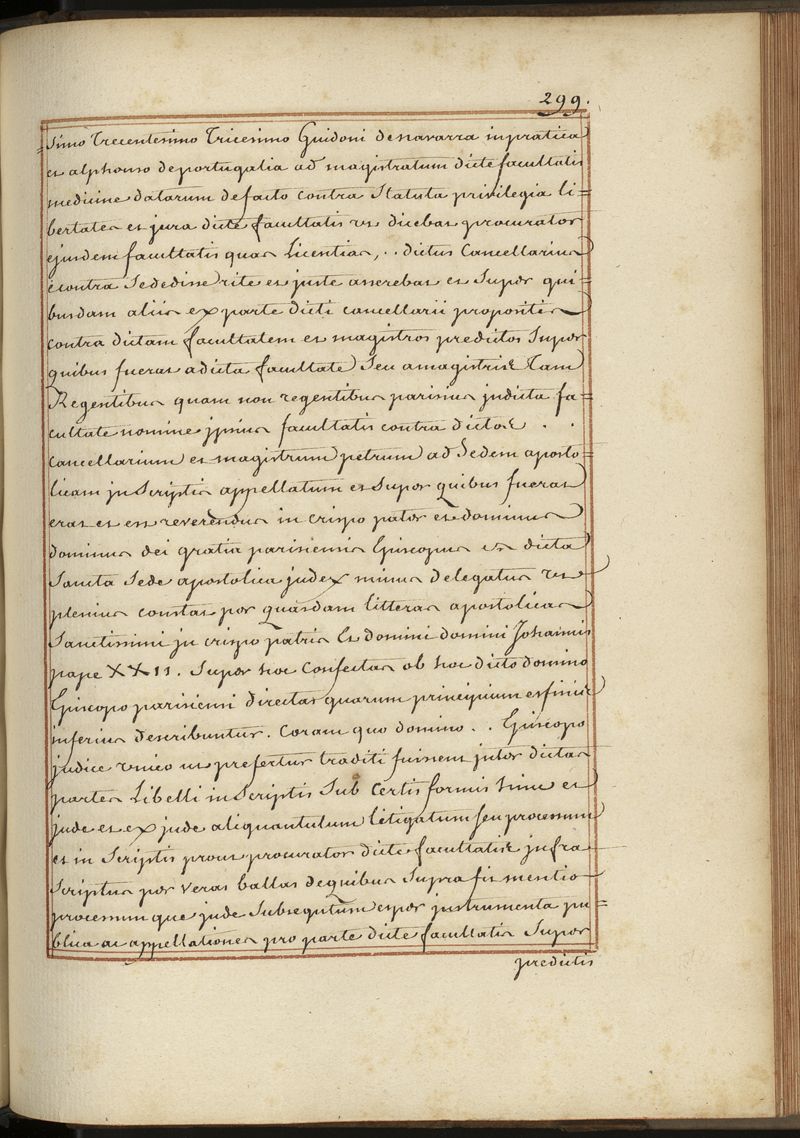 299.
simo Trecentesimo Tricesimo Guidoni de navarra in pratica
et alphonso de portugalia ad magistratum dicte facultatis
medicine datarum de facto contra Statuta privilegia li=
bertates et jura dicte facultatis ut dicebat procurator
ejusdem facultatis quas Licentias, .. dictus Cancellarius
econtra Se dedisse rite et juste asserebat et Super qui=
busdam aliis ex parte dicti cancellarii propositis
contra dictam facultatem et magistros predictos Super
quibus fuerat a dicta facultate Seu a magistris Tam
Regentibus quam non regentibus parisius in dicta fa=
cultate nomine ipsius facultatis contra dictos . .
cancellarium et magistrum petrum ad Sedem aposto=
licam in Scriptis appellatum et Super quibus fuerat
erat et est reverendus in crispo pater et dominus
dominus dei gratia parisiensis Episcopus a dicta
Sancta Sede apostolica judex delegatus ut
plenius constat per quasdam litteras apostolicas
Sanctissimi in crispo patris et domini domini Johannis
pape XXII. Super hoc Confectas ob hoc dicto domino
Episcopo parisiensi directas quarum principium et finis
inferius describuntur. Coram quo domino .. Episcopo
judice unico ut prefertur traditi fuissent inter dictas
partes Libelli in Scriptis Sub Certis formis hinc et
jnde et ex jnde aliquantulum litigatum seu processum
et in Scriptis prout procurator dicte facultatis infra
Scriptus per veras bullas de quibus Supra fit mentio
processum que jnde Subsequtum et per instrumenta pu=
blica ac appellationes pro parte dicte facultatis Super
predictis